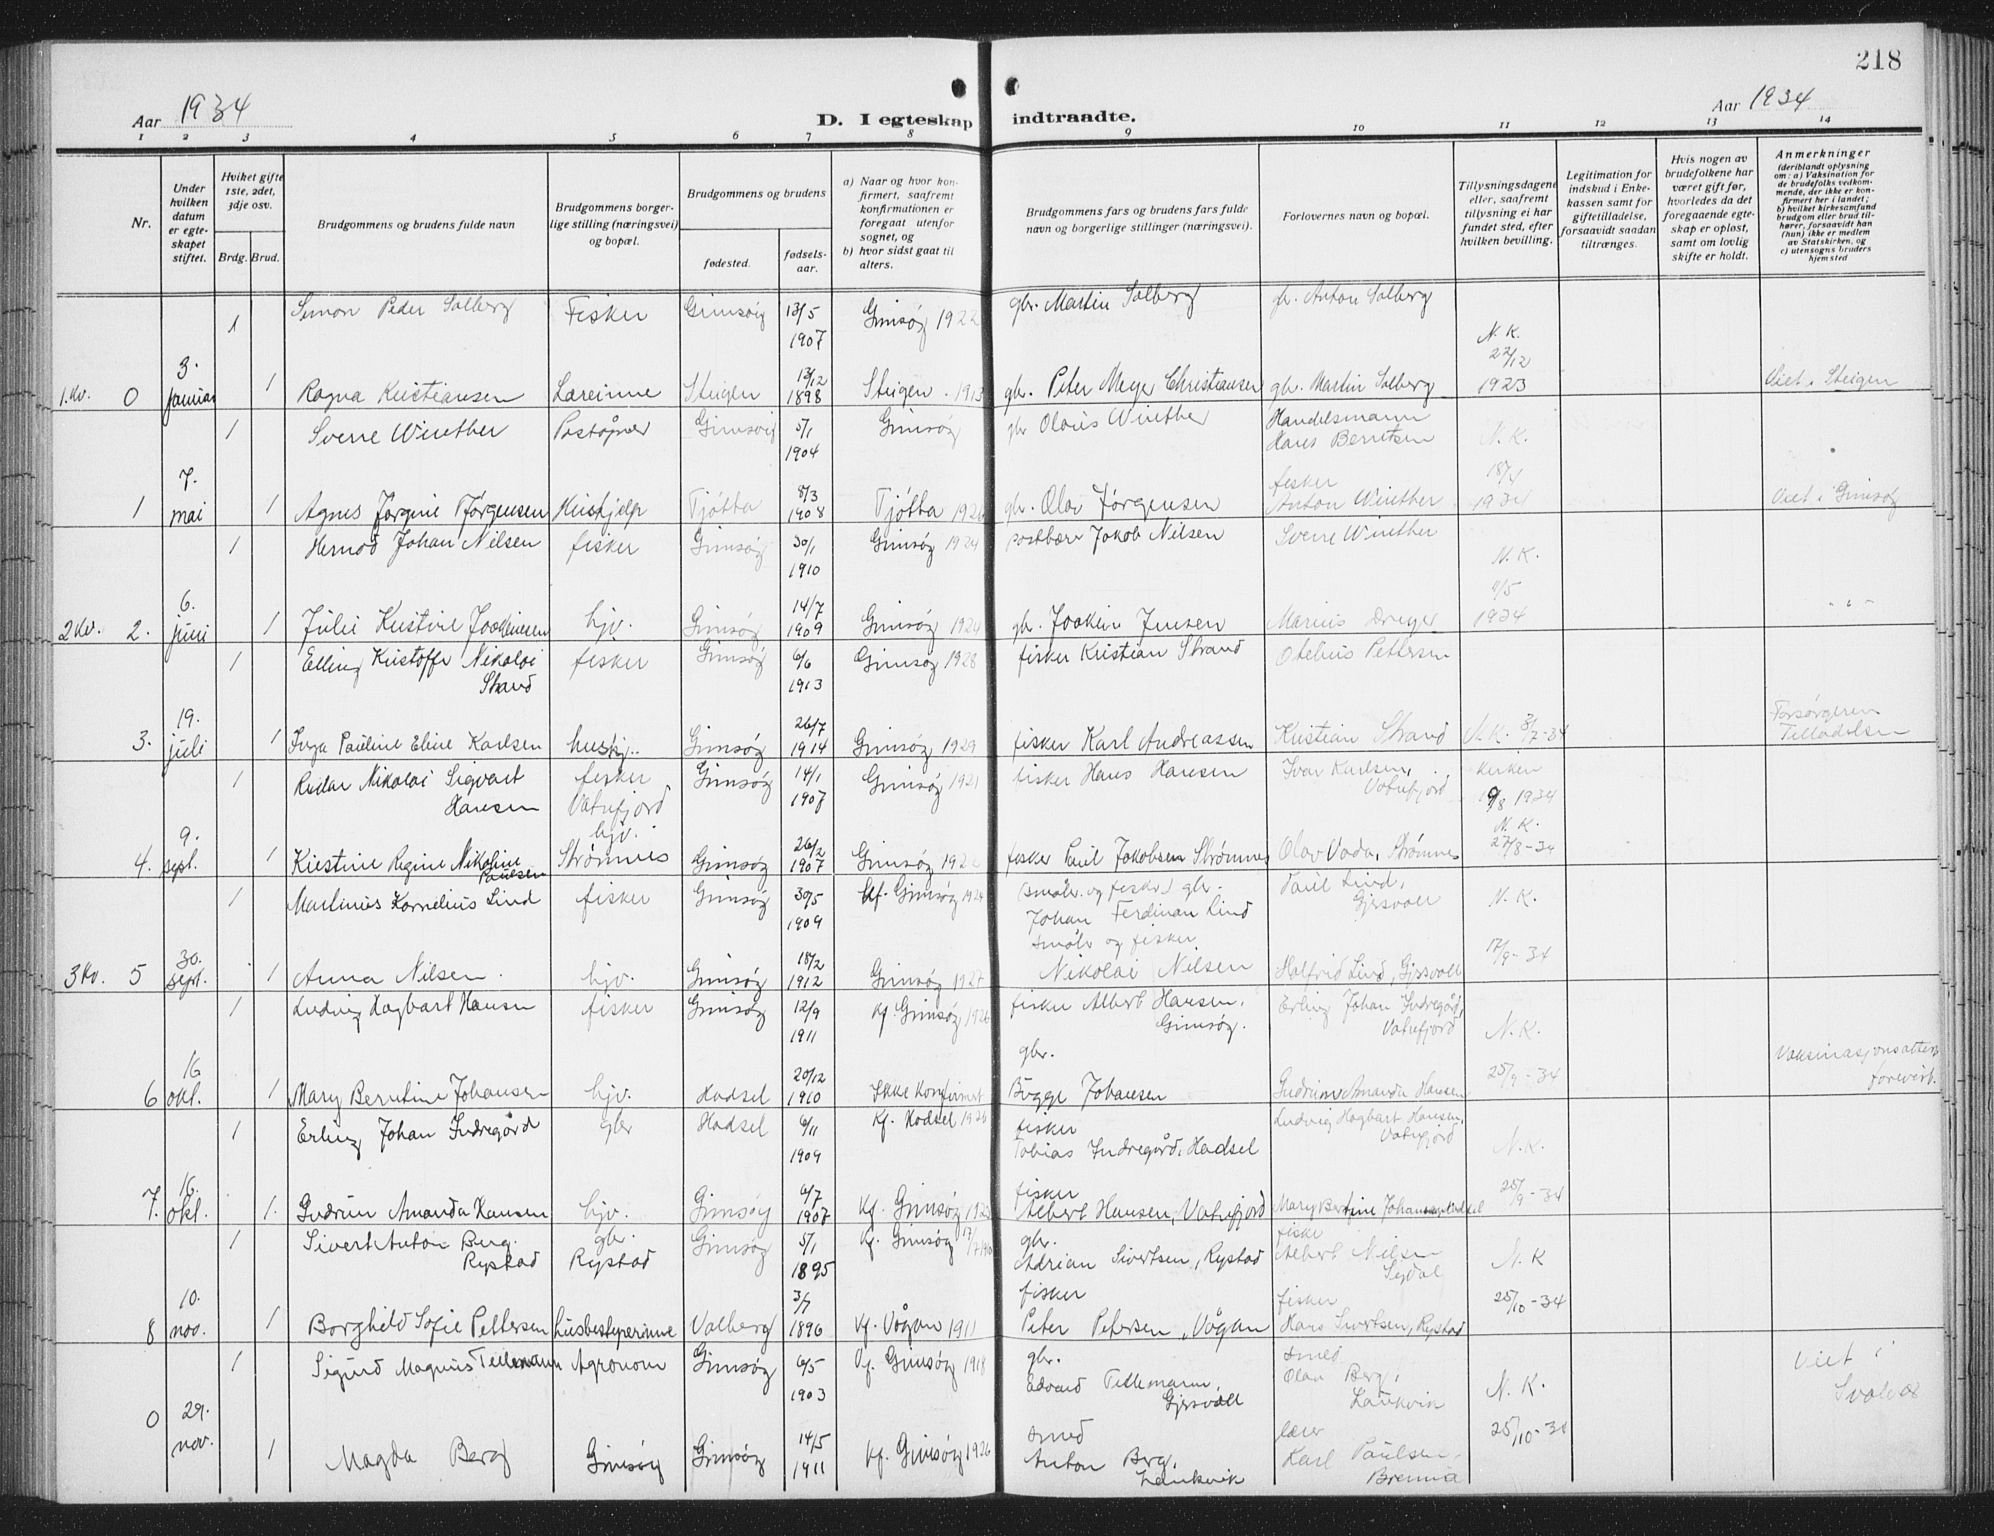 218
Aar 1934
D. I egteskap indtraadte.
Aar 1934
1 2 3 4 5 6 7 8 9 10 11 12 13 14
Nr.
Under hvilken datum er egteskapet stiftet.
Hviket gifte 1ste, 2det, 3dje osv.
Brdg. Brud.
Brudgommens og brudens fulde navn
Brudgommens borgerlige stilling (næringsvei) og bopæl.
Brudgommens og brudens
fødested.
fødselsaar.
a) Naar og hvor konfirmert, saafremt konfirmationen er foregaat utenfor sognet, og
b) hvor sidst gaat til alters.
Brudgommens fars og brudens fars fulde navn og borgerlige stillinger (næringsvei).
Forlovernes navn og bopæl.
Tillysningsdagene eller, saafremt tillysning ei har fundet sted, efter hvilken bevilling.
Legitimation for indskud i Enkekassen samt for giftetilladelse, forsaavidt saadan tiltrænges.
Hvis nogen av brudefolkene har været gift før, hvorledes da det foregaaende egteskap er opløst, samt om lovlig skifte er holdt.
Anmerkninger
(deriblandt oplysning om: a) Vaksination for de brudefolks vedkommende, der ikke er konfirmert her i landet; b) hvilket kirkesamfund brudgom eller brud tilhører, forsaavidt han (hun) ikke er medlem av Statskirken, og c) utensogns bruders hjemsted
1 Simon Peder Solberg Fisker Gimsøy 13/5 1907 Gimsøy 1922 gbr. Martin Solberg gbr. Anton Solberg
1.Kv. 0 3. januar 1 Ragna Kristiansen Lærerinne Steigen 13/12 1898 Steigen 1913 gbr. Peter Meyer Christiansen gbr. Martin Solberg N.K. 22/12 1923 Viet i Steigen
1 Sverre Winther Poståpner Gimsøy 5/1 1904 Gimsøy gbr Olaus Winther Handelsmann Hans Berntsen
1 7. mai 1 Agnes Jørgine Jørgensen Hushjelp Tjøtta 8/3 1908 Tjøtta gbr. Olav Jørgensen fisker Anton Winther N.K. 18/4 1934 Viet i Gimsøy
1 Hernod Johan Nilsen fisker Gimsøy 30/1 1910 Gimsøy 1924 postbærer Jakob Nilsen Sverre Winther
2 Kv. 2. 6. juni 1 Julie Kristine Joakimsen hjv. Gimsøy 14/7 1909 Gimsøy 1924 gbr. Joakim Jensen Marius Dreyer N.K. 1934 - " -
1 Elling Kristoffer Nikolai Strand fisker Gimsøy 6/6 1913 Gimsøy 1928 fisker Kristian Strand Otelius Pettersen
3. 19. juli 1 Inga Pauline Eline Karlsen hushj. Gimsøy 26/7 1914 Gimsøy 1929 fisker Karl Andreassen Kristian Strand N.K. 3/7-34 Forsørgeren Tilladelse
1 Reidar Nikolai Sigvart Hansen fisker Vatnfjord Gimsøy 14/1 1907 Gimsøy 1921 fisker Hans Hansen Ivar Karlsen, Vatnfjord Kirken 19/8 1934
4. 9. sept. 1 Kristine Regine Nikoline Paulsen hjv. Strømnes Gimsøy 26/2 1907 Gimsøy 192 fisker Paul Jakobsen Strømnes Olav Vada, Strømnes N.K. 27/8-34
1 Martinus Kornelius Lind fisker Gimsøy 30/5 1909 kf. Gimsøy 1924 småbr. og fisker gbr. Johan Ferdinan Lind Paul Lind, Gjersvoll N.K.
3 Kv. 5 30. sept. 1 Anna Nilsen. hjv. Gimsøy 18/2 1912 Gimsøy 1927 småbr og fisker Nikolai Nilsen Halfrid Lind, Gjersvoll 17/9-34
1 Ludvig Hagbart Hansen fisker Gimsøy 12/9 1911 kf. Gimsøy 1926 fisker Albert Hansen, Gimsøy. Erling Johan Indregård, Vatnfjord N.K.
6 16 okt. 1 Mary Berntine Johansen hjv. Hadsel 20/12 1910 Ikke konfirmert gbr. Bugge Johansen Gudrun Amanda Hansen 25/9-34 Vaksinasjonsattest forevist.
1 Erling Johan Indregård gbr Hadsel 6/11 1909 kf. Hadsel 1926 fisker Tobias Indregård, Hadsel Ludvig Hagbart Hansen, Vatnfjord N.K.
7. 16. okt. 1. Gudrun Amanda Hansen hjv. Gimsøy 6/7 1907 kf. Gimsøy fisker Albert Hansen, Vatnfjord Mary Berntine Johansen, Hadsel 25/9-34
1 Sivert Anton Berg. Rystad gbr. Rystad Gimsøy 5/1 1895 kf. Gimsøy gbr. Adrian Sivertsen, Rystad fisker Albert Nilsen N.K
8 10. nov. 1 Borghild Sofie Pettersen husbestyrerinne Valberg 3/7 1896 kf. Vågan 1911 fisker Peter Petersen, Vågan fisker Hans Sivertsen, Rystad 25/10-34
1 Sigurd Magnus Tellemann Agronom Gimsøy 6/5 1903 kf. Gimsøy 1918 gbr. Edvard Tellemann, Gjersvoll smed Olav Berg, Laukvik N.K. Viet i Svolvær
0 29. nov. 1 Magda Berg Gimsøy Gimsøy 14/5 1911 kf. Gimsøy 1926 smed Anton Berg, Laukvik lærer Karl Paulsen, Brenna 25/10-34